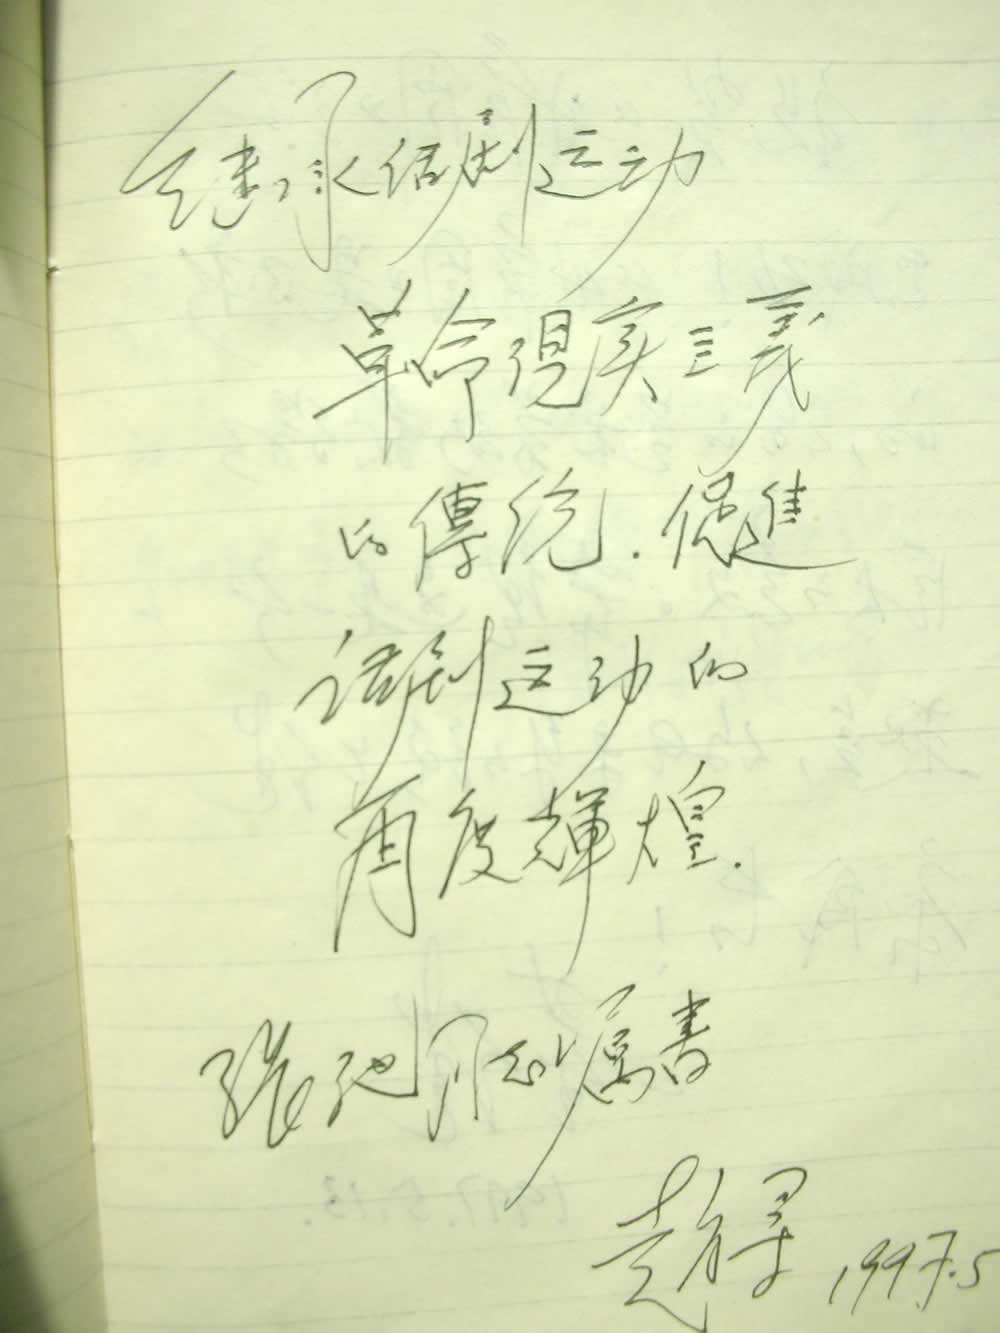 继承话剧运动
革命現实主義
的傳统.促進
话剧运动的
再度輝煌.
張弛同志嘱書
趙尋 1997.5